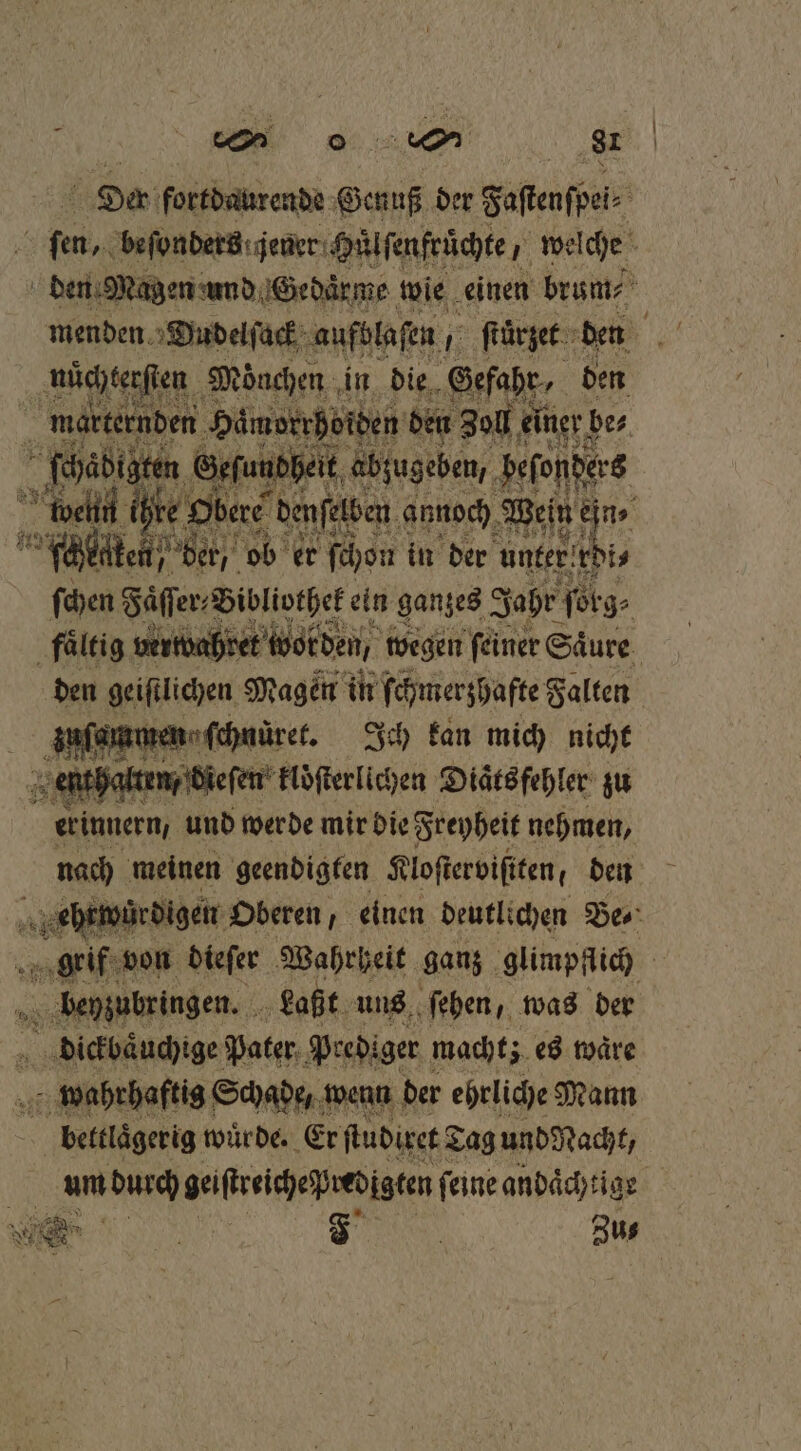 o 81
Der fortdaurende Genuß der Faſtenſpei⸗
ſen, beſonders jener Huͤlſenfruͤchte, welche
den Magen und Gedaͤrme wie einen brum⸗
menden Dudelſack aufblaſen, ſtuͤrzet den
nuͤchterſten Moͤnchen in die Gefahr, den
marternden Haͤmorrhoiden den Zoll einer be⸗
ſchaͤdigten Geſundheit abzugeben, beſonders
wenn ihre Obere denſelben annoch Wein ein⸗
ſchenken, der, ob er ſchon in der unterirrdi⸗
ſchen Faͤſſer⸗Bibliothek ein ganzes Jahr ſorg⸗
faͤltig verwahret worden, wegen ſeiner Saͤure
den geiſtlichen Magen in ſchmerzhafte Falten
zuſammen ſchnuͤret. Ich kan mich nicht
enthalten, dieſen kloͤſterlichen Diaͤtsfehler zu
erinnern, und werde mir die Freyheit nehmen,
nach meinen geendigten Kloſterviſiten, den
ehrwuͤrdigen Oberen, einen deutlichen Be⸗
grif von dieſer Wahrheit ganz glimpflich
beyzubringen. Laßt uns ſehen, was der
dickbaͤuchige Pater Prediger macht; es waͤre
wahrhaftig Schade, wenn der ehrliche Mann
bettlaͤgerig wuͤrde. Er ſtudiret Tag und Nacht,
um durch geiſtreiche Predigten ſeine andaͤchtige
F Zu⸗